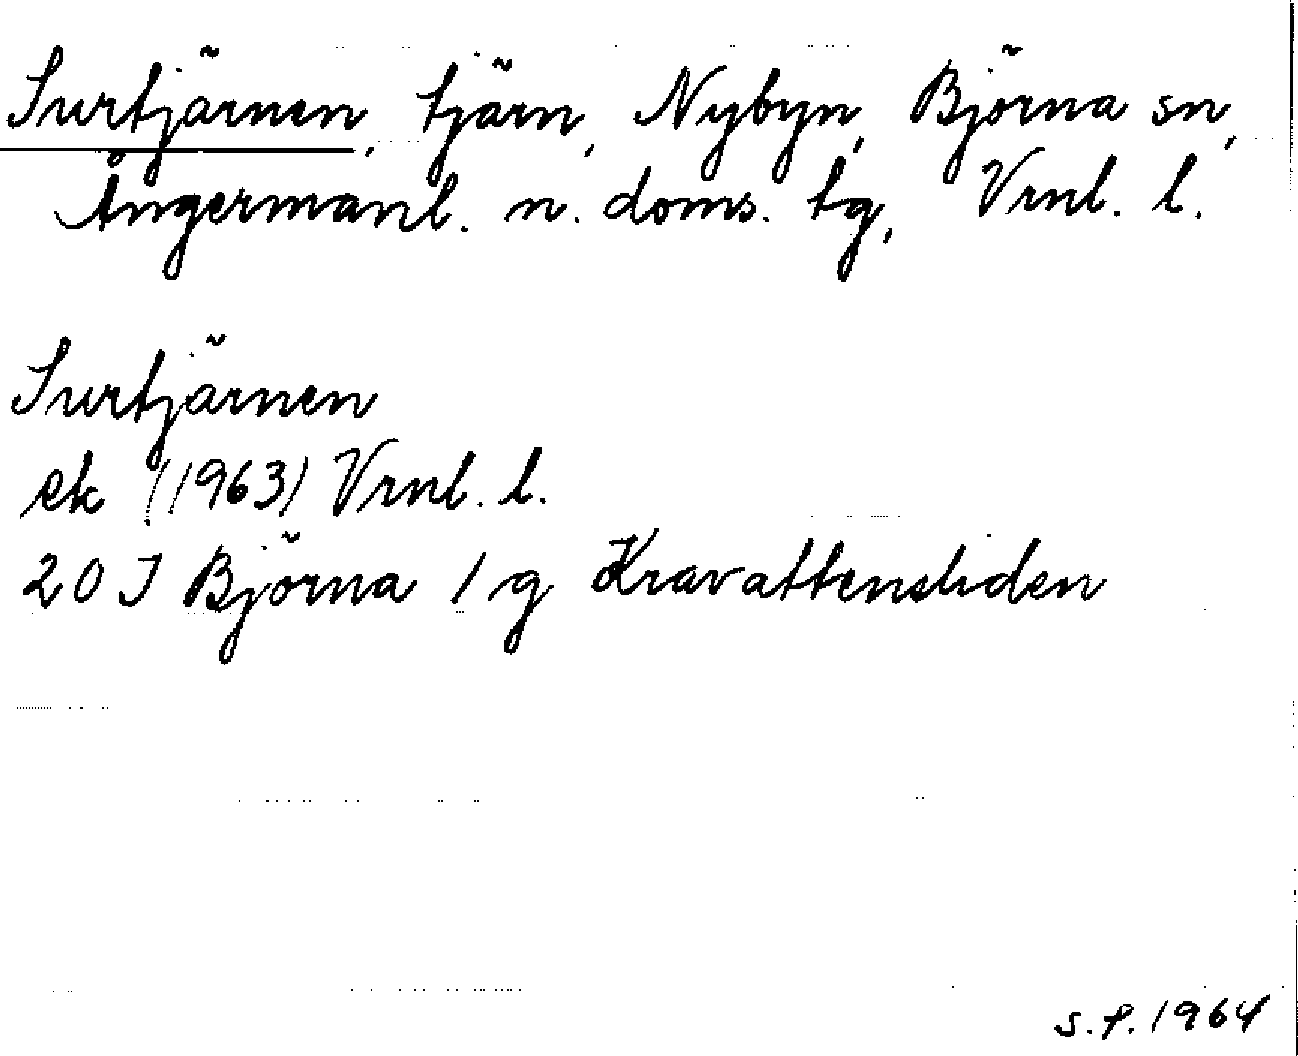 Surtjärnen, tjärn, Nybyn, Björna sn,
Ångermanl. n. doms. tg, Vrnl. l.
Surtjärnen
ek (1963) Vrnl. l.
20 J Björna 1 g Kravattensliden
S. P. 1964